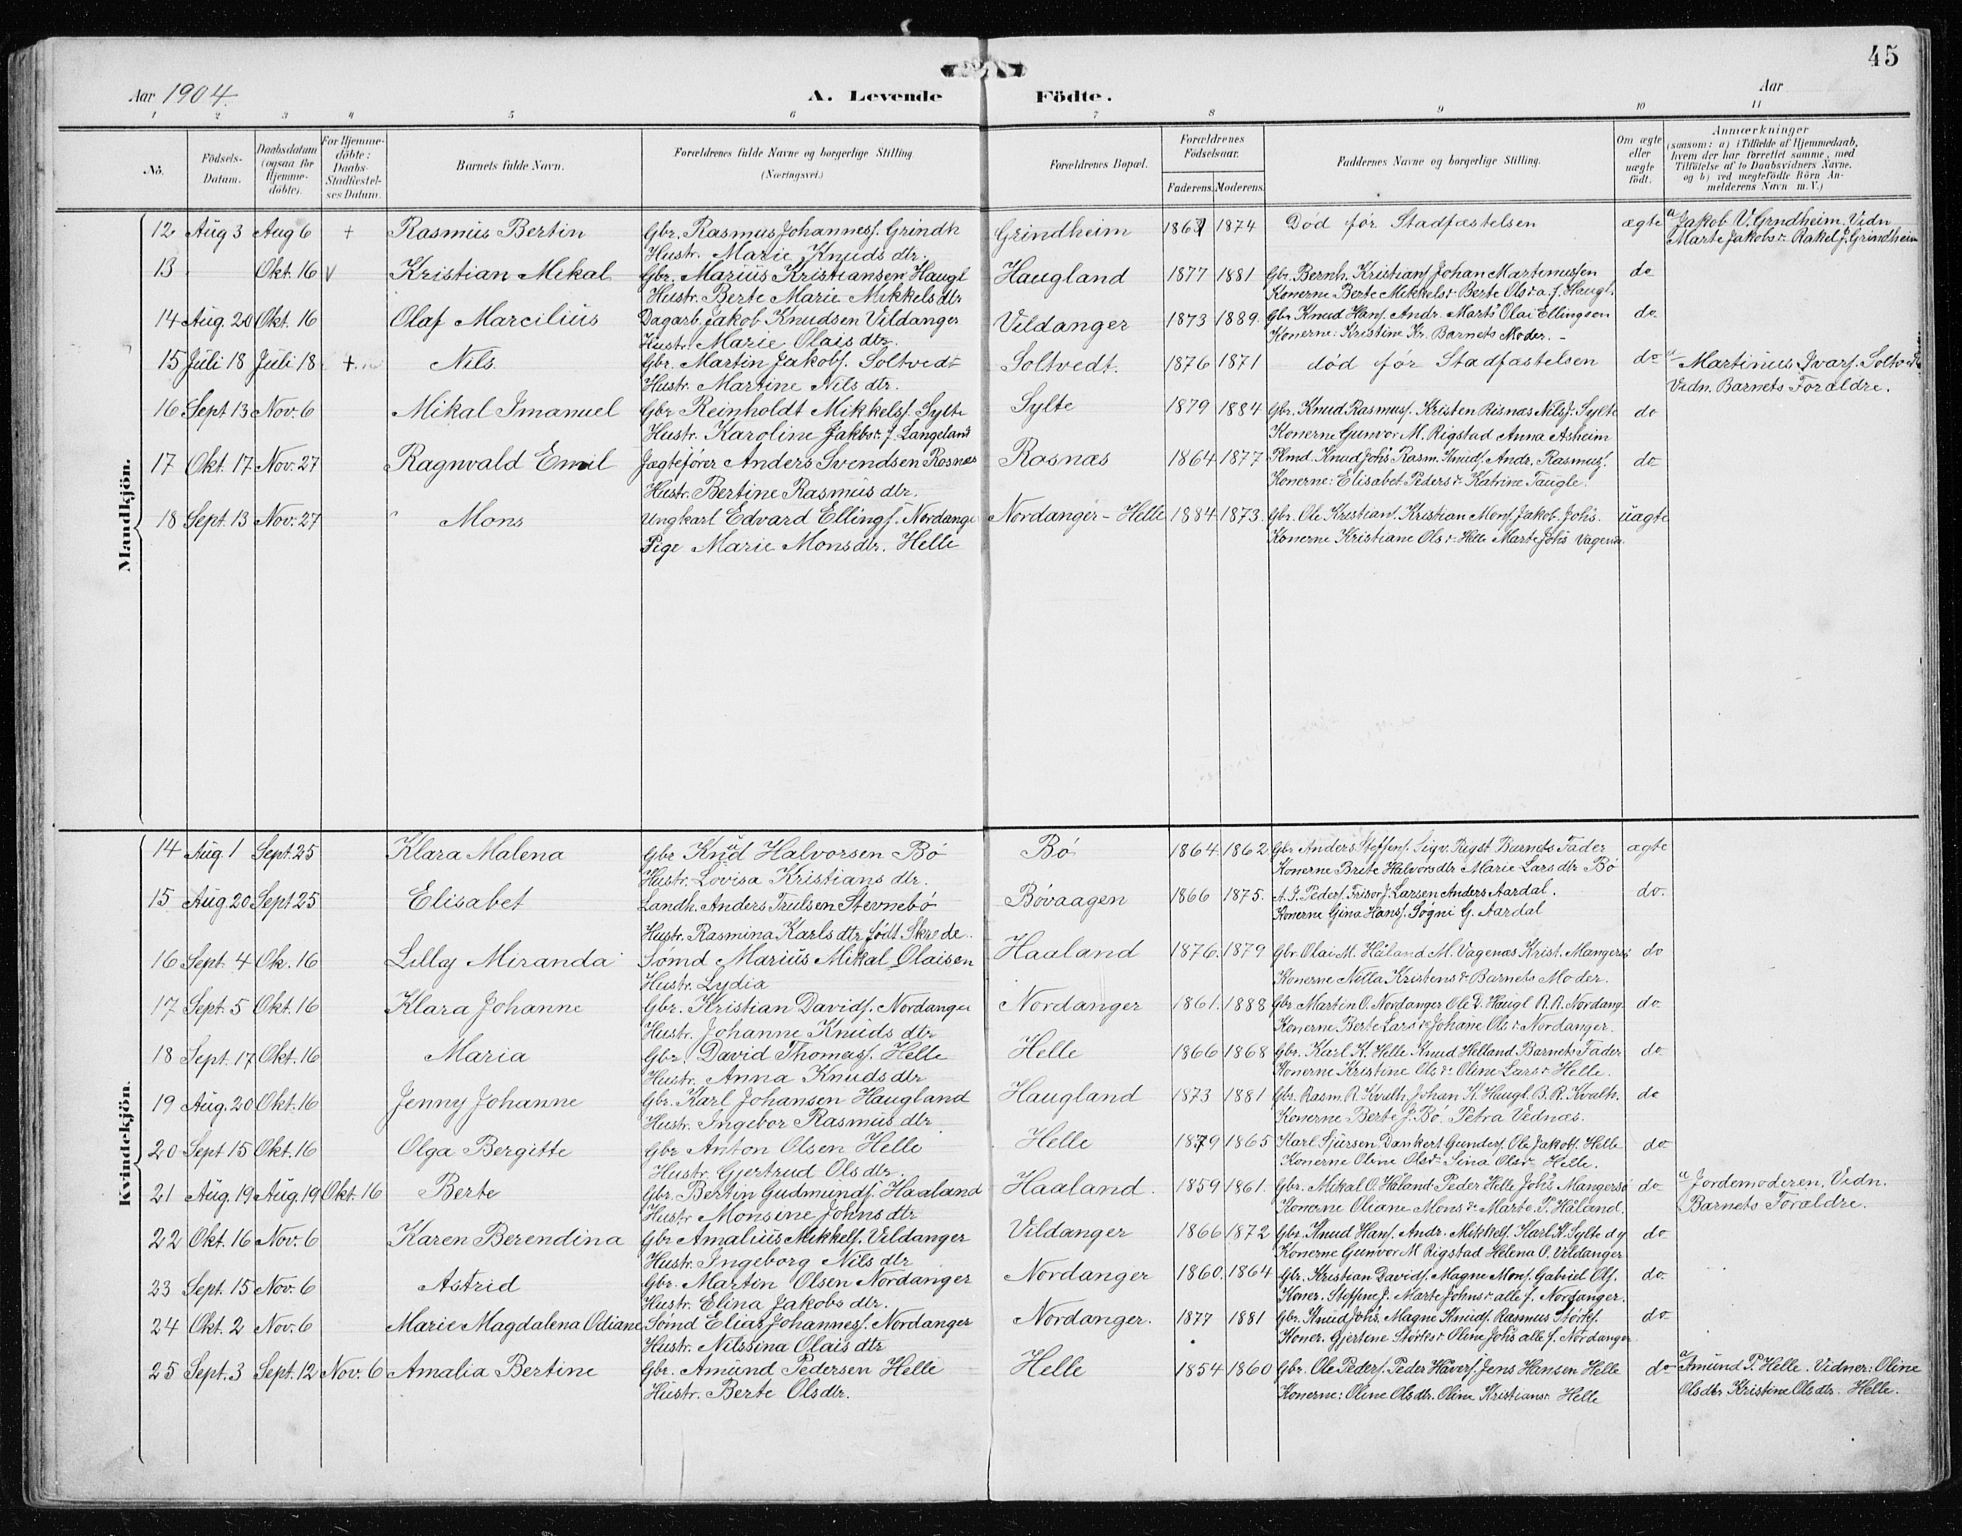 45
Aar 1904.
A. Levende Födte.
Aar
1 2 3 4 5 6 7 8 9 10 11
No.
Födsels-Datum.
Daabsdatum (ogsaa for Hjemmedöbte).
For Hjemmedöbte: Daabs-Stadfæstelses Datum.
Barnets fulde Navn.
Forældrenes fulde Navne og borgerlige Stilling (Næringsvei.)
Forældrenes Bopæl.
Forældrenes Födselsaar.
Faderens. Moderens.
Faddernes Navne og borgerlige Stilling.
Om ægte eller uægte födt.
Anmærkninger
(saasom: a) i Tilfælde af Hjemmedaab, hvem der har forrettet samme, med Tilföielse af to Daabsvidners Navne, og b) ved uægtefödte Börn Anmelderens Navn m. V.)
Mandkjön.
12 Aug 3 Aug 6 + Rasmus Bertin Gbr. Rasmus Johannesf. Grindh Grindheim 1867 1874 Död før Stadfæstelsen ægte a Jakob V. Grndheim. Vidn
Hustr. Marie Knuds dtr. Marte Jakobsdr Rakel J. Grindheim
13 Okt. 16 v Kristian Mikal Gbr. Marius Kristiansen Haugl Haugland 1877 1881 Gbr. Bernh. Kristiansf Johan Martinussen do
Hustr. Berte Marie Mikkels dtr Konerne Berte Mikkelsdr Berte Olsd a. f. Haugl.
14 Aug. 20 Okt. 16 Olaf Marcilius Dagarb. Jakob Knudsen Vildanger Vildanger 1873 1889. Gbr Knud Hansf. Andr. Marts Olai Ellingsen do
Hustr. Marie Olais dtr. Konerne: Kristine Kr. Barnets Moder. -
15 Juli 18 Juli 18 + Nils. Gbr. Martin Jakobs. Soltvedt Soltvedt. 1876 1871 död før Stadfæstelsen do a Martinus Ivarsf. Soltvedt
Hustr. Martine Nils dtr. Vidn. Barnets Foraldre.
16 Sept 13 Nov. 6 Mikal Imanuel Gbr Reinholdt Mikkelsf. Sylte Sylte 1879 1884 Gbr. Knud Rasmusf. Kristen Risnæs Nilsf. Sylte do
Hustr. Karoline Jakbsdr. f. Langeland Konerne Gunvor M. Rigstad Anna Asheim
17 Okt. 17 Nov. 27 Ragnvald Emil Jægtefører Anders Svendsen Rosnæs Rosnæs 1864 1877 Knud Johs Rasm. Knudsf. Andr. Rasmusf. do
Hustr. Bertine Rasmus dtr. Konerne: Elisabet Pedersdr Katrine Taugle.
18 Sept. 13 Nov. 27 Mons Ungkarl Edvard Ellingf. Nordange Nordanger - Helle 1884 1873. Gbr. Ole Kristiansf. Kristian Monsf. Jakob Johs. uagte
Pige Marie Mons dtr. Helle Konerne Kristiane Olsdr Helle Marte Johs Vagenæs
Kvindekjön.
14 Aug 1 Sept. 25 Klara Malena Gbr Knud Halvorsen Bö Bö 1864. 1862 Gbr Anders Steffens. Sigv. Rigst Barnets Fader ægte
Hustr. Lovisa Kristians dtr. Konerne Brite Halvors dtr Marie Lars dtr Bö
15 Aug 20 Sept 25 Elisabet Landh. Anders Trulsen Stevnebö Bövaagen 1866 1875. A. J. Pedersf. Larsen Anders Aardal. do.
Hustr. Rasmina Karls dtr. født Skrede. Konerne Gina Hansf. Sögni G. Aardal
16 Sept. 4 Ok. 16 Lilly Miranda Sömd Marius Mikal Olaisen Haaland 1876. 1879 Gbr. Olai M. Håland M. Vagenæs Krist. Mangersö do
Hustr. Lydia Konerne Nella Kristensdr Barnets Moder.
17 Sept. 5 Okt. 16 Klara Johanne Gbr. Kristian Davidsf. Nordanger Nordanger 1861. 1888 Gbr Martin O. Nordanger Ole D. Haugl R. R. Nordang. do
Hustr. Johanne Knuds dtr Konerne Berte Larsdr Johane Olsdr Nordanger.
18 Sept. 17 Okt. 16 Maria Gbr. David Thomasf. Helle Helle 1866 1868 Gbr. Karl K. Helle Knud Helland Barnets Fader do
Hustr. Anna Knuds dtr Konerne Kristine Olsdr Oline Larsdr Helle.
19 Aug. 20 Okt. 16 Jenny Johanne Gbr. Karl Johansen Haugland Haugland 1873 1881 Gbr. Rasm. R. Kvalh. Johan K. Haugl B. R. Kvalh. do
Hustr. Ingebor Rasmus dtr Konerne Berte J. Bö Petra Vednæs.
20 Sept 15 Okt. 16 Olga Bergitte Gbr Anton Olsen Helle Helle 1879 1865 Karl Sjursen Dankert Gundersf. Ole Jakobsf. Helle do
Hustr. Gjertrud Ols dtr. Konerne Oline Olsdr Sina Olsdr Helle.
21 Aug. 19 Aug. 19 Okt. 16 Berte Gbr. Bertin Gudmundsf. Haaland Haaland. 1859 1861. Gbr. Mikal O. Håland Peder Helle Johs Mangersö do a Jordemoderen, Vidn.
Hustr Monsine Johns dtr Konerne Oliane Monsdr Marte P. Håland. Barnets Foraldre.
22 Okt. 16 Nov. 6 Karen Berendina Gbr Amalius Mikkelsf. Vildanger Vildanger 1866 1872 Gbr. Knud Hansf. Andr. Mikkelsf. Karl K. Sylte dy do
Hustr. Ingeborg Nils dtr Konerne Gunvor M Rigstad Helena O. Vildanger
23 Sept. 15 Nov. 6 Astrid Gbr. Martin Olsen Nordanger Nordanger 1860. 1864 Gbr. Kristian Davidsf. Magne Monsf. Gabriel Olsf. do
Hustr. Elina Jakobs dtr. Koner. Steffine J. Marte Johnsdr alle f. Nordanger.
24 Okt. 2 Nov. 6 Marie Magdalena Odiane Sömd Elias Johannesf. Nordanger Nordanger. 1877 1881 Gbr. Knud Johs. Magne Knudsf. Rasmus Störksf. do
Hustr. Nilssina Olais dtr Koner. Gjertine Störksdr Oline Johs alle f. Nordanger.
25 Sept. 3 Sept. 12 Nov. 6 Amalia Bertine Gbr. Amund Pedersen Helle Helle 1854 1860 Gbr. Ole Pedersf. Peder Håversf. Jens Hansen Helle do a Amund P. Helle. Vidner: Oline
Hustr. Berte Olsdtr. Konerne: Oline Olsdtr. Oline Kristiansdr Helle Olsdtr Kristine Olsdtr. Helle.